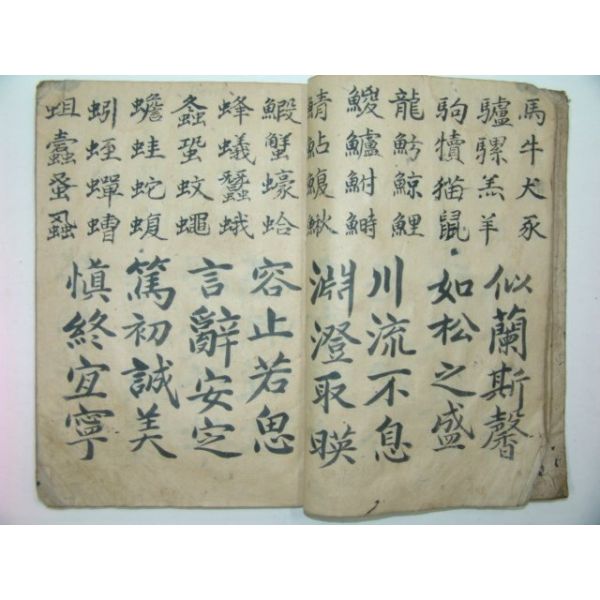 馬牛犬豕
驢騾羔羊
駒犢猫鼠
龍魵鯨鯉
鰻鱸鮒鰣
鯖鮎鰒鰍
鰕蟹蠔蛤
蜂蟻蠶蛾
蚤蛩蚊蠅
蟾蛙蛇蝮
蚓蛭蟬螬
蛆蠹蚤蝨
似蘭斯馨
如松之盛
川流不息
淵澄取暎
容止若思
言辭安定
篤初誠美
慎終宜寧